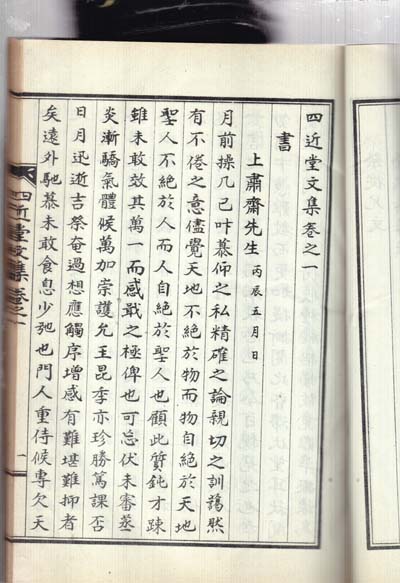 四近堂文集卷之一
書
上肅齋先生 丙辰五月日
月前操几已咔慕仰之私精確之論親切之訓藹然
有不倦之意儘覺天地不絶於物而物自絶於天地
聖人不絶於人而人自絶於聖人也顧此質鈍才踈
雖未敢效其萬一而感戢之極俾也可忘伏未審蒸
炎漸驕氣體候萬加崇護允玉昆季亦珍勝篤課否
日月迅逝吉祭奄過想應觸序增感有難堪難抑者
矣遠外馳慕未敢食息少弛也門人重侍候專欠天
四近堂文集 卷之一
一